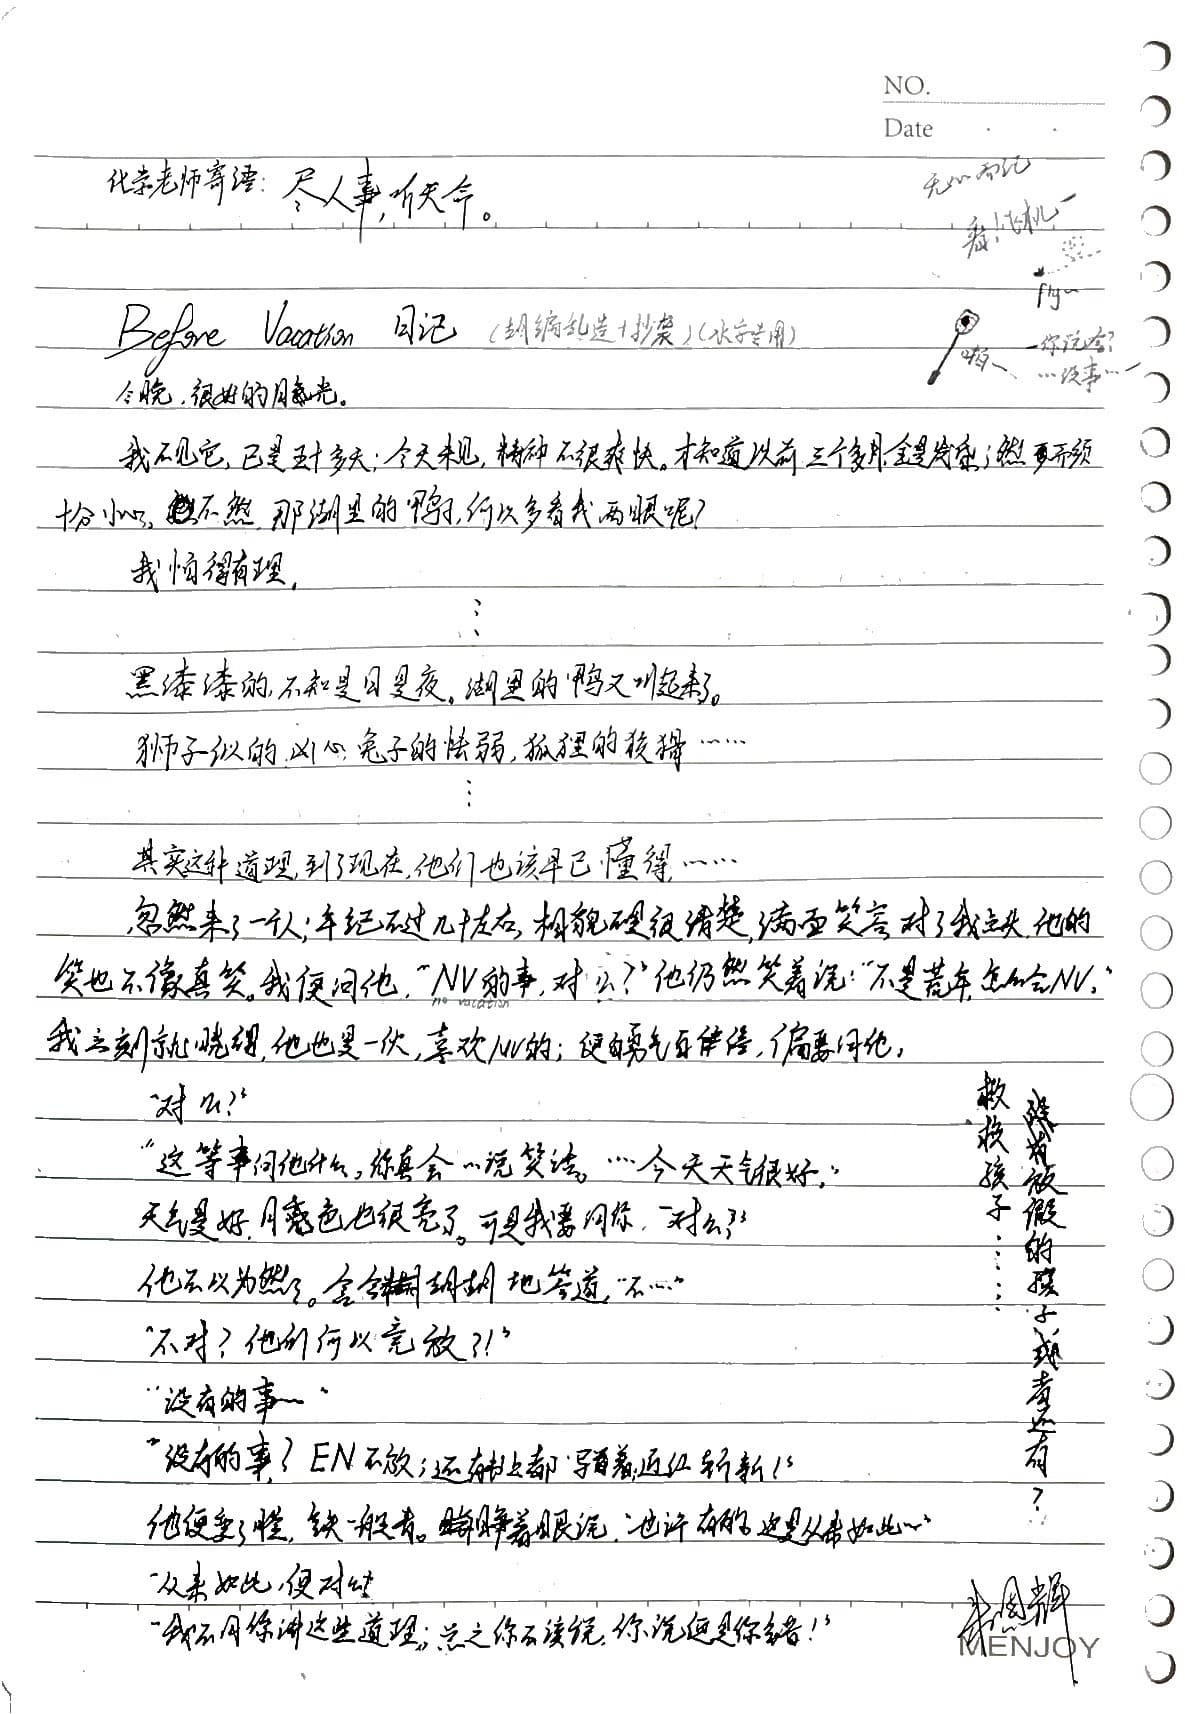 NO.
Date
化学老师寄语：尽人事，听天命。
看！飞机
fly
Before Vacation 日记（胡编乱造+抄袭）（水字专用）
啪
你说啥？
…没事…
今晚，很好的月光。
我不见它，已是五十多天；今天来见，精神不很爽快。才知道以前三个多月全是发昏；然而须
十分小心，不然，那湖里的鸭子，何以多看我两眼呢？
我怕得有理。
⋮
黑漆漆的，不知是日是夜。湖里的鸭又叫起来了。
狮子似的凶心，兔子的怯弱，狐狸的狡猾……
⋮
其实这种道理，到了现在，他们也该早已懂得……
忽然来了一个人；年纪不过几十左右，相貌不是很清楚，满面笑容，对了我点头，他的
笑也不像真笑。我便问他，“NV的事，对么？”他仍然笑着说：“不是荒年，怎么会NV。”
no vacation
我立刻就晓得，他也是一伙，喜欢NV的；便自勇气百倍，偏要问他。
“对么？”
“这等事问他什么。你真会……说笑话。……今天天气很好。”
天气是好，月色也很亮了。可是我要问你，“对么？”
他不以为然了。含含糊糊地答道，“不……”
“不对？他们何以竟放？！”
“没有的事……”
“没有的事？EN不放；还有书上都写着，近红斩新！”
他便变了脸，铁一般青。睁着眼说，“也许有的，这是从来如此……”
“从来如此，便对么”
“我不同你讲这些道理；总之你不该说，你说便是你错！”
没有放假的孩子，或者还有？
救救孩子……
MENJOY